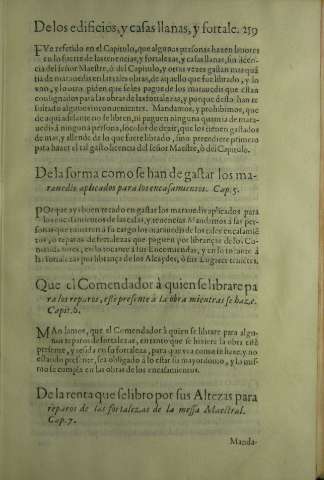 De los edificios, y casas llanas, y fortale. 259
FVe refetido en el Capitulo, que algunas personas hazen lauores
en lo fuerte de las tenencias, y fortalezas, y casas llanas, sin licen-
cia del señor Maestre, ò del Capitulo, y otras vezes gastan mas quā
tia de marauedis en las tales obras, de aquello que fue librado, y lo
vno, y lo otro piden que se les pague de los marauedis que estan
consignados para las obras de las fortalezas, y porque desto han re
sultado algunos inconuenientes. Mandamos, y prohibimos, que
de aqui adelante no se libren, ni paguen ninguna quantia de mara-
uedis à ninguna persona, so color de dezir, que los tienen gastados
de mas, y allende de lo que fuere librado, sino precediere primero
para hazer el tal gasto licencia del señor Maestre, ò del Capitulo.
De la forma como se han de gastar los ma-
rauedis aplicados para los encasamientos. Cap. 5.
POrque aya buen recado en gastar los marauedis aplicados para
los encasamientos de las casas, y tenencias Mandamos à las per-
sonas que tuuieren à su cargo los marauedis de los tales encasamiē
tos, ò reparos de fortalezas que paguen por librança de los Co-
mendadores, en lo tocante à las Encomiendas, y en lo tocante à
las fortalezas por librança de los Alcaydes, ò sus Lugares tinientes.
Que el Comendador à quien se librare pa
ra los reparos, esté presente à la obra mientras se haze.
Cap. 6.
MAndamos, que el Comendador à quien se librare para algu-
nos reparos de fortalezas, en tanto que se hiziere la obra esté
presente, y resida en la fortaleza, para que vea como se haze, y no
estando presente, sea obligado à lo estar su mayordomo, y lo mis-
mo se cumpla en las obras de los encasamientos.
De la renta que se libro por sus Altezas para
reparos de las fortalezas de la mesa Maestral.
Cap. 7.
Manda-